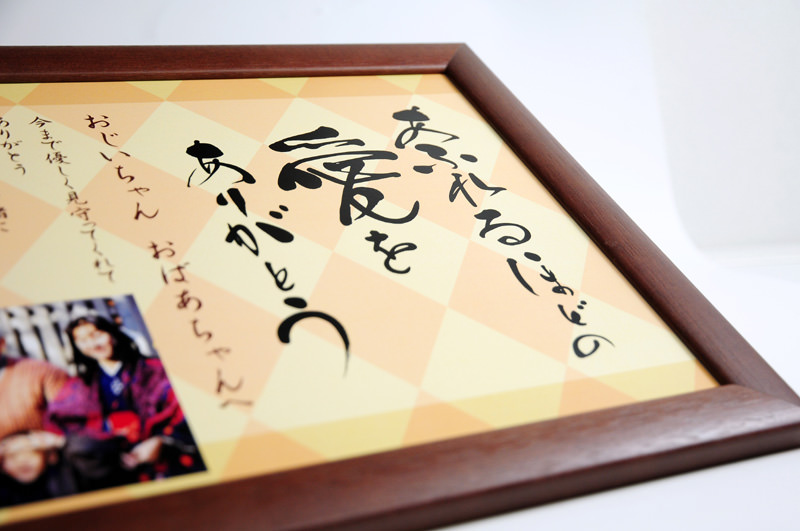 あふれるほどの
愛を
ありがとう
おじいちゃん おばあちゃんへ
今まで優しく見守ってくれて
ありがとう